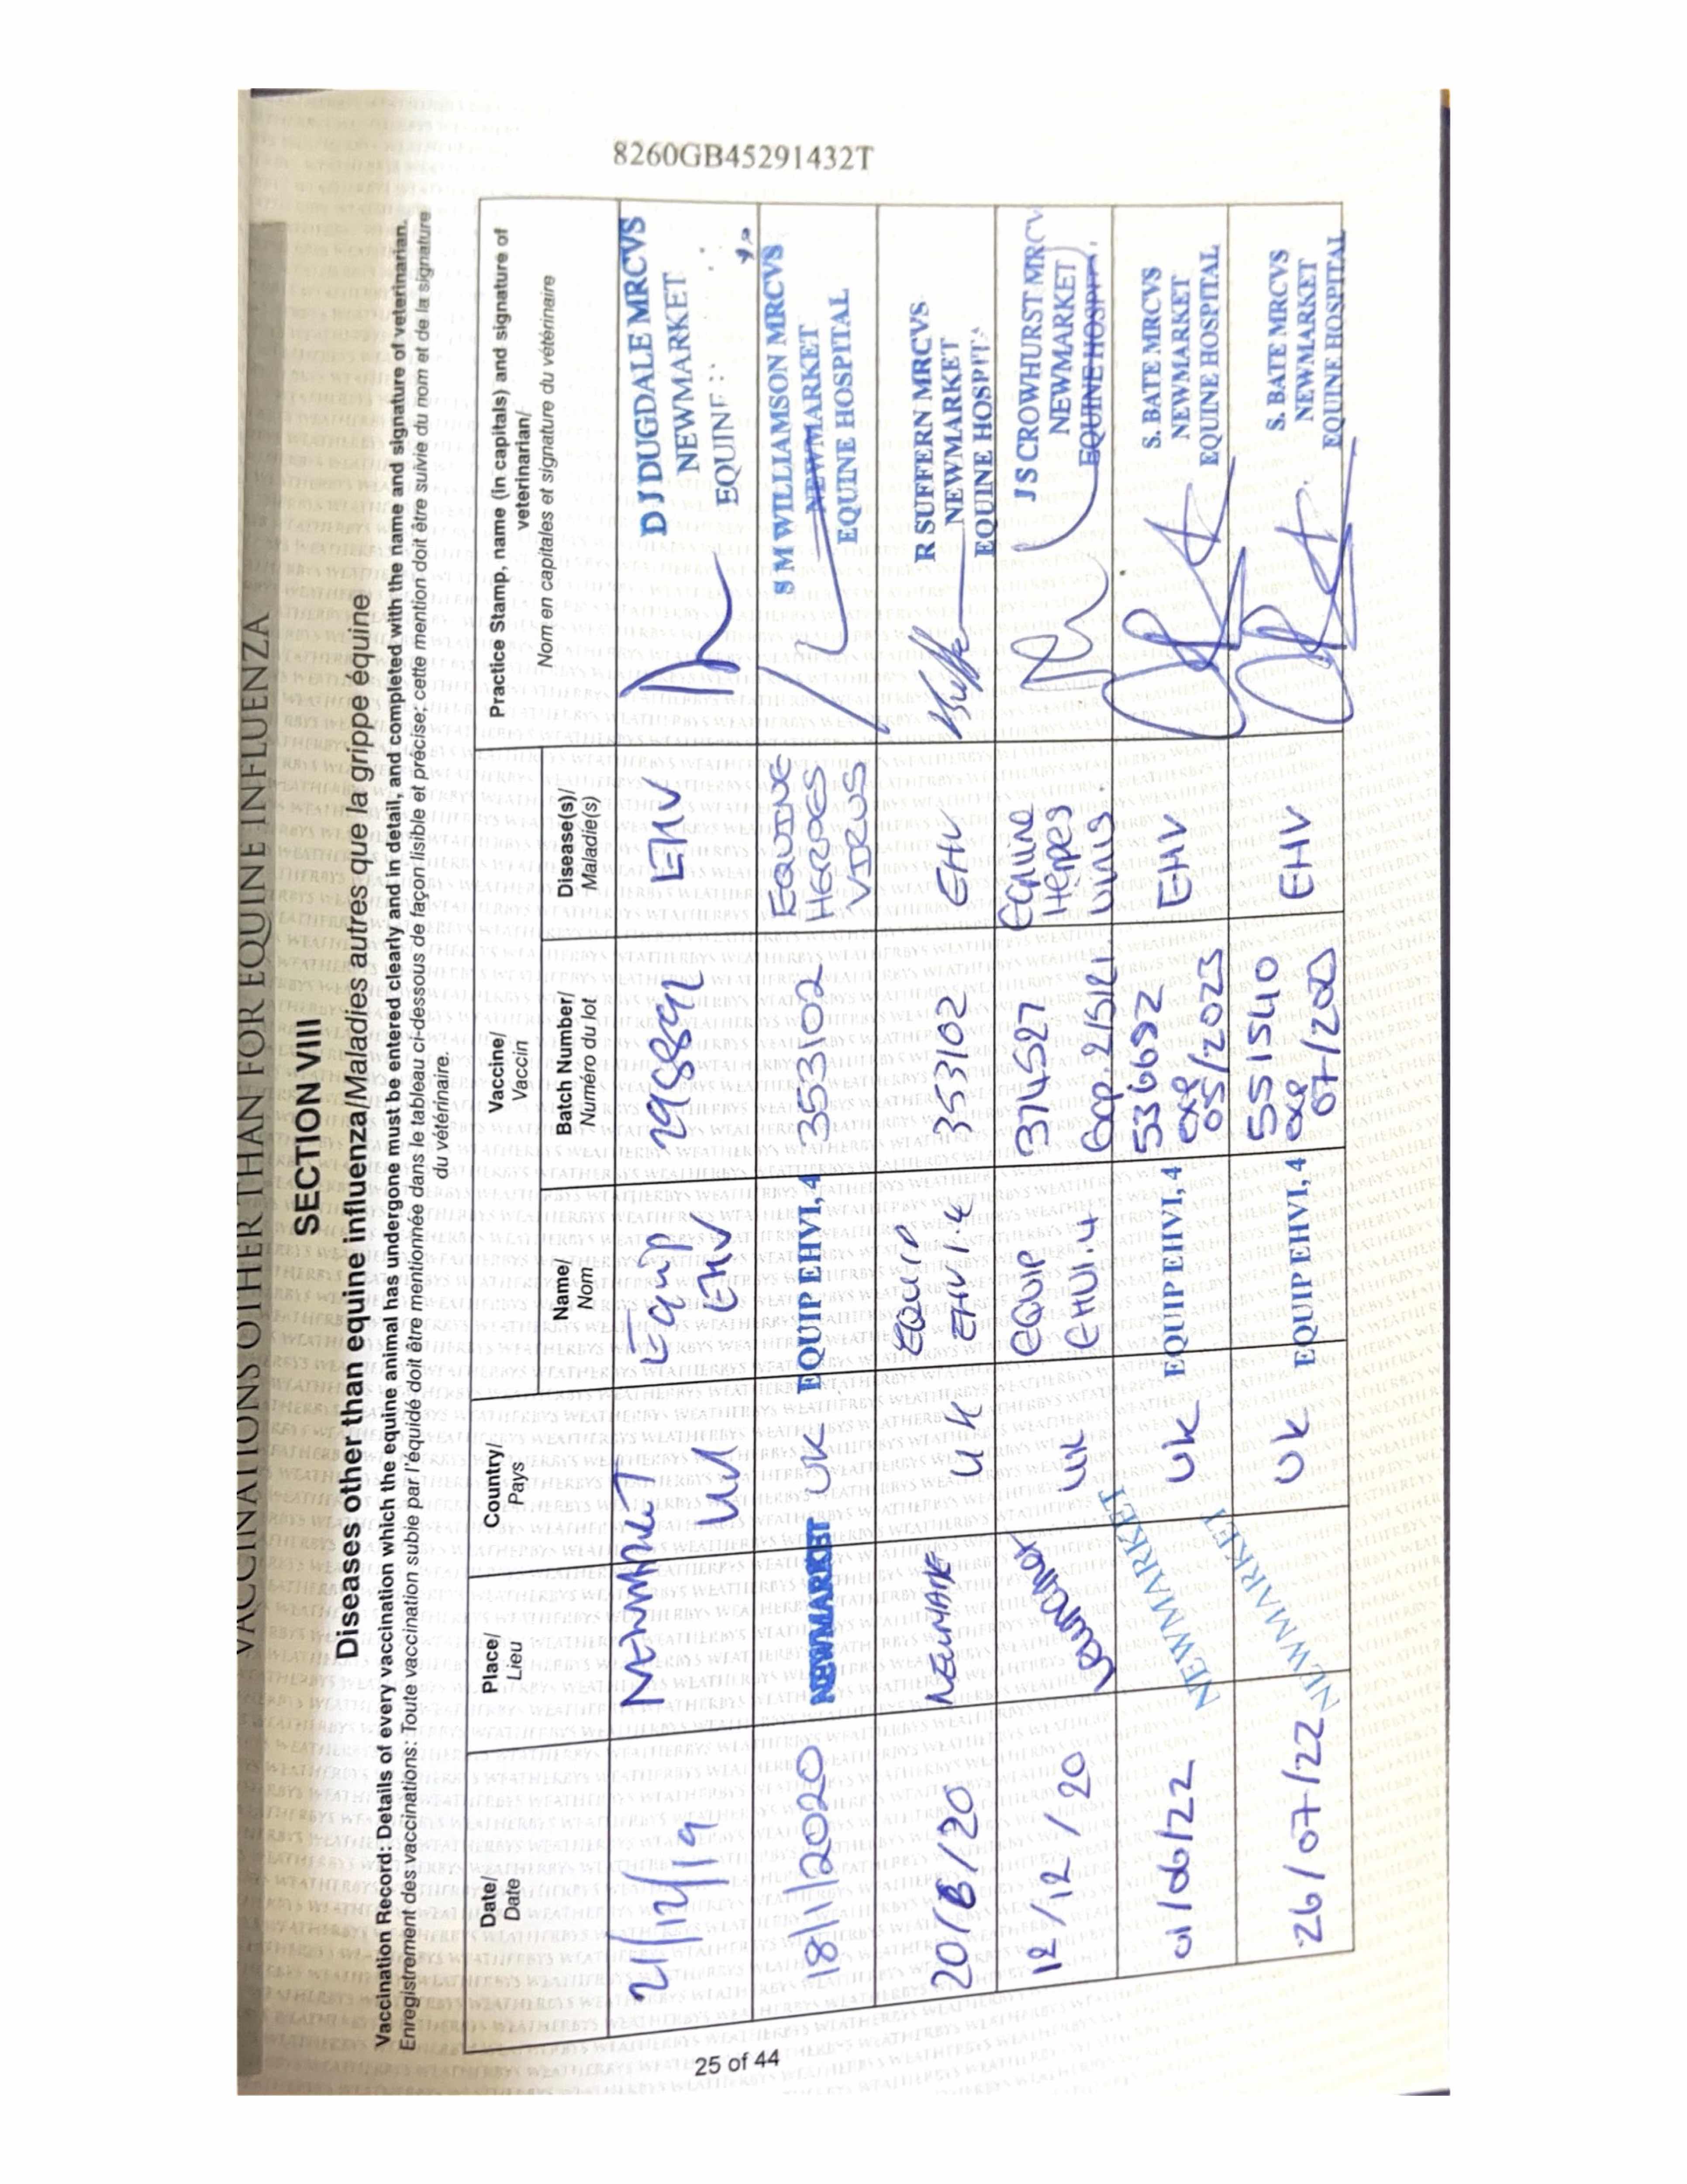 VACCINATIONS OTHER THAN FOR EQUINE INFLUENZA
SECTION VIII
Diseases other than equine influenza/Maladies autres que la grippe équine
Vaccination Record: Details of every vaccination which the equine animal has undergone must be entered clearly and in detail, and completed with the name and signature of veterinarian.
Enregistrement des vaccinations: Toute vaccination subie par l'équidé doit être mentionnée dans le tableau ci-dessous de façon lisible et précise; cette mention doit être suivie du nom et de la signature
du vétérinaire.
Date/
Date
Place/
Lieu
Country/
Pays
Vaccine/
Vaccin
Name/
Nom
Batch Number/
Numéro du lot
Disease(s)/
Maladie(s)
Practice Stamp, name (in capitals) and signature of
veterinarian/
Nom en capitales et signature du vétérinaire
21/12/19
UK
Equip
EHV
EHV
D J DUGDALE MRCVS
NEWMARKET
EQUINE
18/1/2020
NEWMARKET
UK
EQUIP EHV1,4
353102
EQUINE
HERPES
VIRUS
S M WILLIAMSON MRCVS
NEWMARKET
EQUINE HOSPITAL
20/8/20
UK
EQUIP
EHV 1.4
353102
EHV
R SUFFERN MRCVS
NEWMARKET
EQUINE HOSPIT
12/12/20
UK
EQUIP
EHV1.4
374527
Equine
Herpes
Virus.
J S CROWHURST MRCV
NEWMARKET
EQUINE HOSPIT
01/06/22
NEWMARKET
UK
EQUIP EHV1,4
536692
exp
05/2023
EHV
S. BATE MRCVS
NEWMARKET
EQUINE HOSPITAL
26/07/22
NEWMARKET
UK
EQUIP EHV1,4
551540
exp
EHV
S. BATE MRCVS
NEWMARKET
EQUINE HOSPITAL
25 of 44
8260GB45291432T